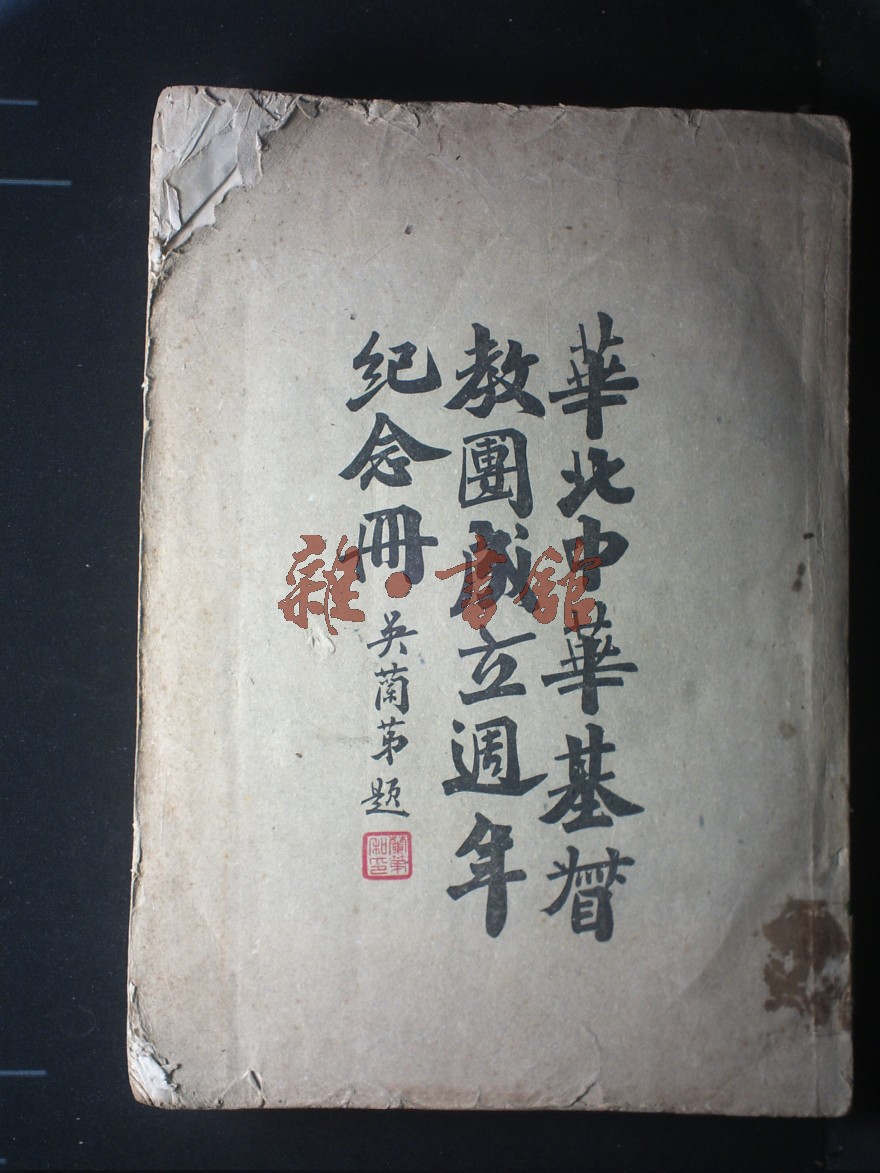 華北中華基督
教團成立週年
紀念冊
吳蘭苐題
雜·書館